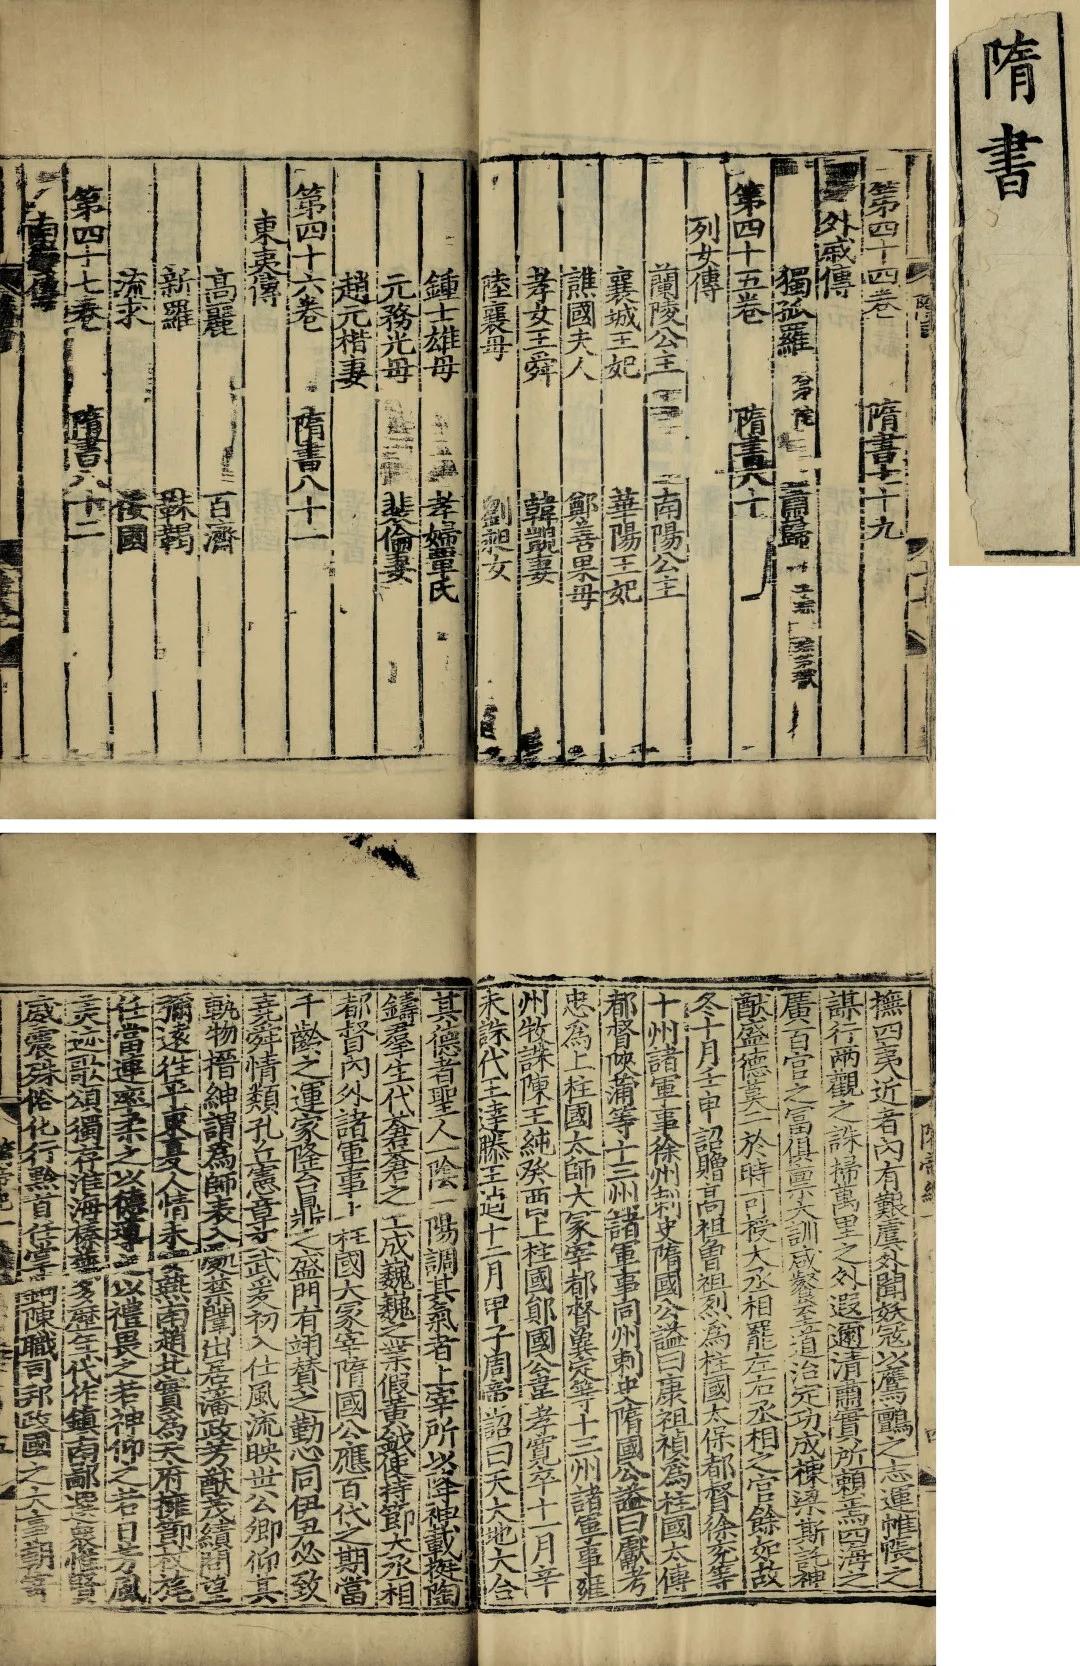 隋書
第四十四卷 隋書七十九
外戚傳
獨孤羅 弟陀 蕭巋 子琮 琮弟瓛
第四十五卷 隋書八十
列女傳
蘭陵公主 南陽公主
襄城王妃 華陽王妃
譙國夫人 鄭善果母
孝女王舜 韓覬妻
陸襄母 劉昶女
鍾士雄母 孝婦覃氏
元務光母 裴倫妻
趙元楷妻
第四十六卷 隋書八十一
東夷傳
高麗 百濟
新羅 靺鞨
流求 倭國
第四十七卷 隋書八十二
南蠻傳
撫四夷近者內有艱虞外聞妖寇以鷹鸇之志運帷帳之
謀行兩觀之誅掃萬里之外遐邇清肅實所賴焉四海之
廣百官之富俱稟大訓咸餐至道治定功成棟梁斯託神
猷盛德莫二於時可授大丞相罷左右丞相之官餘如故
冬十月壬申詔贈高祖曾祖烈為柱國太保都督徐兗等
十州諸軍事徐州刺史隋國公謚曰康祖禎為柱國太傅
都督陝蒲等十三州諸軍事同州刺史隋國公謚曰獻考
忠為上柱國太師大冢宰都督冀定等十三州諸軍事雍
州牧誅陳王純癸酉上柱國鄖國公韋孝寬卒十一月辛
未誅代王達滕王逌十二月甲子周帝詔曰天大地大合
其德者聖人一陰一陽調其氣者上宰所以降神載挺陶
鑄羣生代蒼蒼之工成巍巍之業假黃鉞使持節大丞相
都督內外諸軍事上柱國大冢宰隋國公應百代之期當
千齡之運家隆台鼎之盛門有翊贊之勤心同伊尹必致
堯舜情類孔丘憲章文武爰初入仕風流映世公卿仰其
軌物搢紳謂為師表入處禁闈出居藩政芳猷茂績問望
彌遠往平東夏人情未安燕南趙北實為天府擁節杖旄
任當連率柔之以德導之以禮畏之若神仰之若日芳風
美迹歌頌獨存淮海榛蕪多歷年代作鎮南鄙選衆惟賢
威震殊俗化行黔首任掌鉤陳職司邦政國之大事朝寄